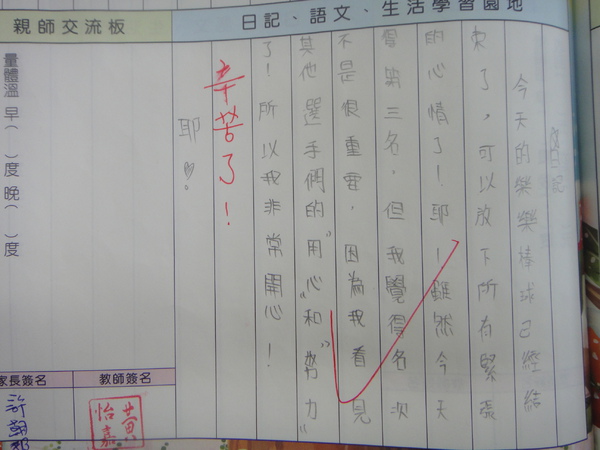 日記、語文、生活學習園地
日記
今天的樂樂棒球已經結
束了，可以放下所有緊張
的心情了！耶！雖然今天
得第三名，但我覺得名次
不是很重要，因為我看見
其他選手們的"用心"和"努力"
了！所以我非常開心！
耶！
辛苦了！
親師交流板
量體溫 早（ ）度 晚（ ）度
教師簽名
黃怡嘉
家長簽名
許